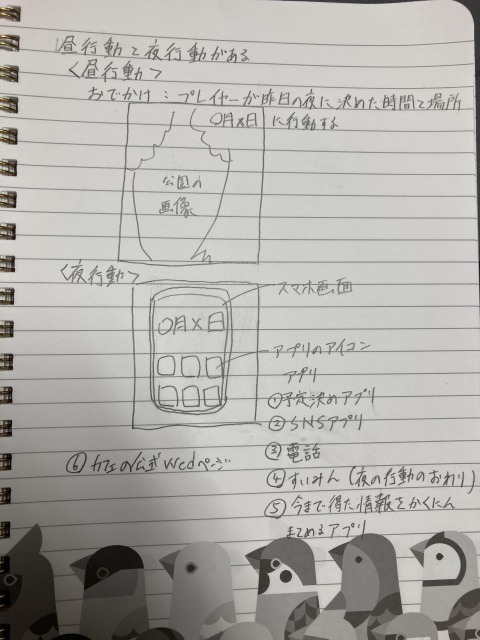 昼行動と夜行動がある
<昼行動>
おでかけ:プレイヤーが昨日の夜に決めた時間と場所
に行動する
〇月×日
公園の
画像
<夜行動>
スマホ画面
〇月×日
アプリのアイコン
アプリ
①予定決めアプリ
②SNSアプリ
③電話
④すいみん(夜の行動のおわり)
⑤今まで得た情報をかくにん
まとめるアプリ
⑥カフェの公式Wedページ